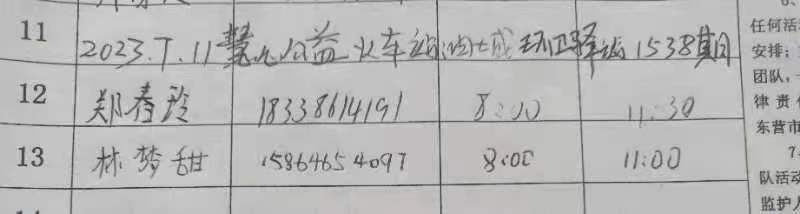 11 2023.7.11 慧心公益火车站 环卫驿站1538期
12 郑春玲 18338614191 8:00 11:30
13 林梦甜 15864654097 8:00 11:00
任何活
安排；
团队，
律责
东营市
7.
队活动
监护人